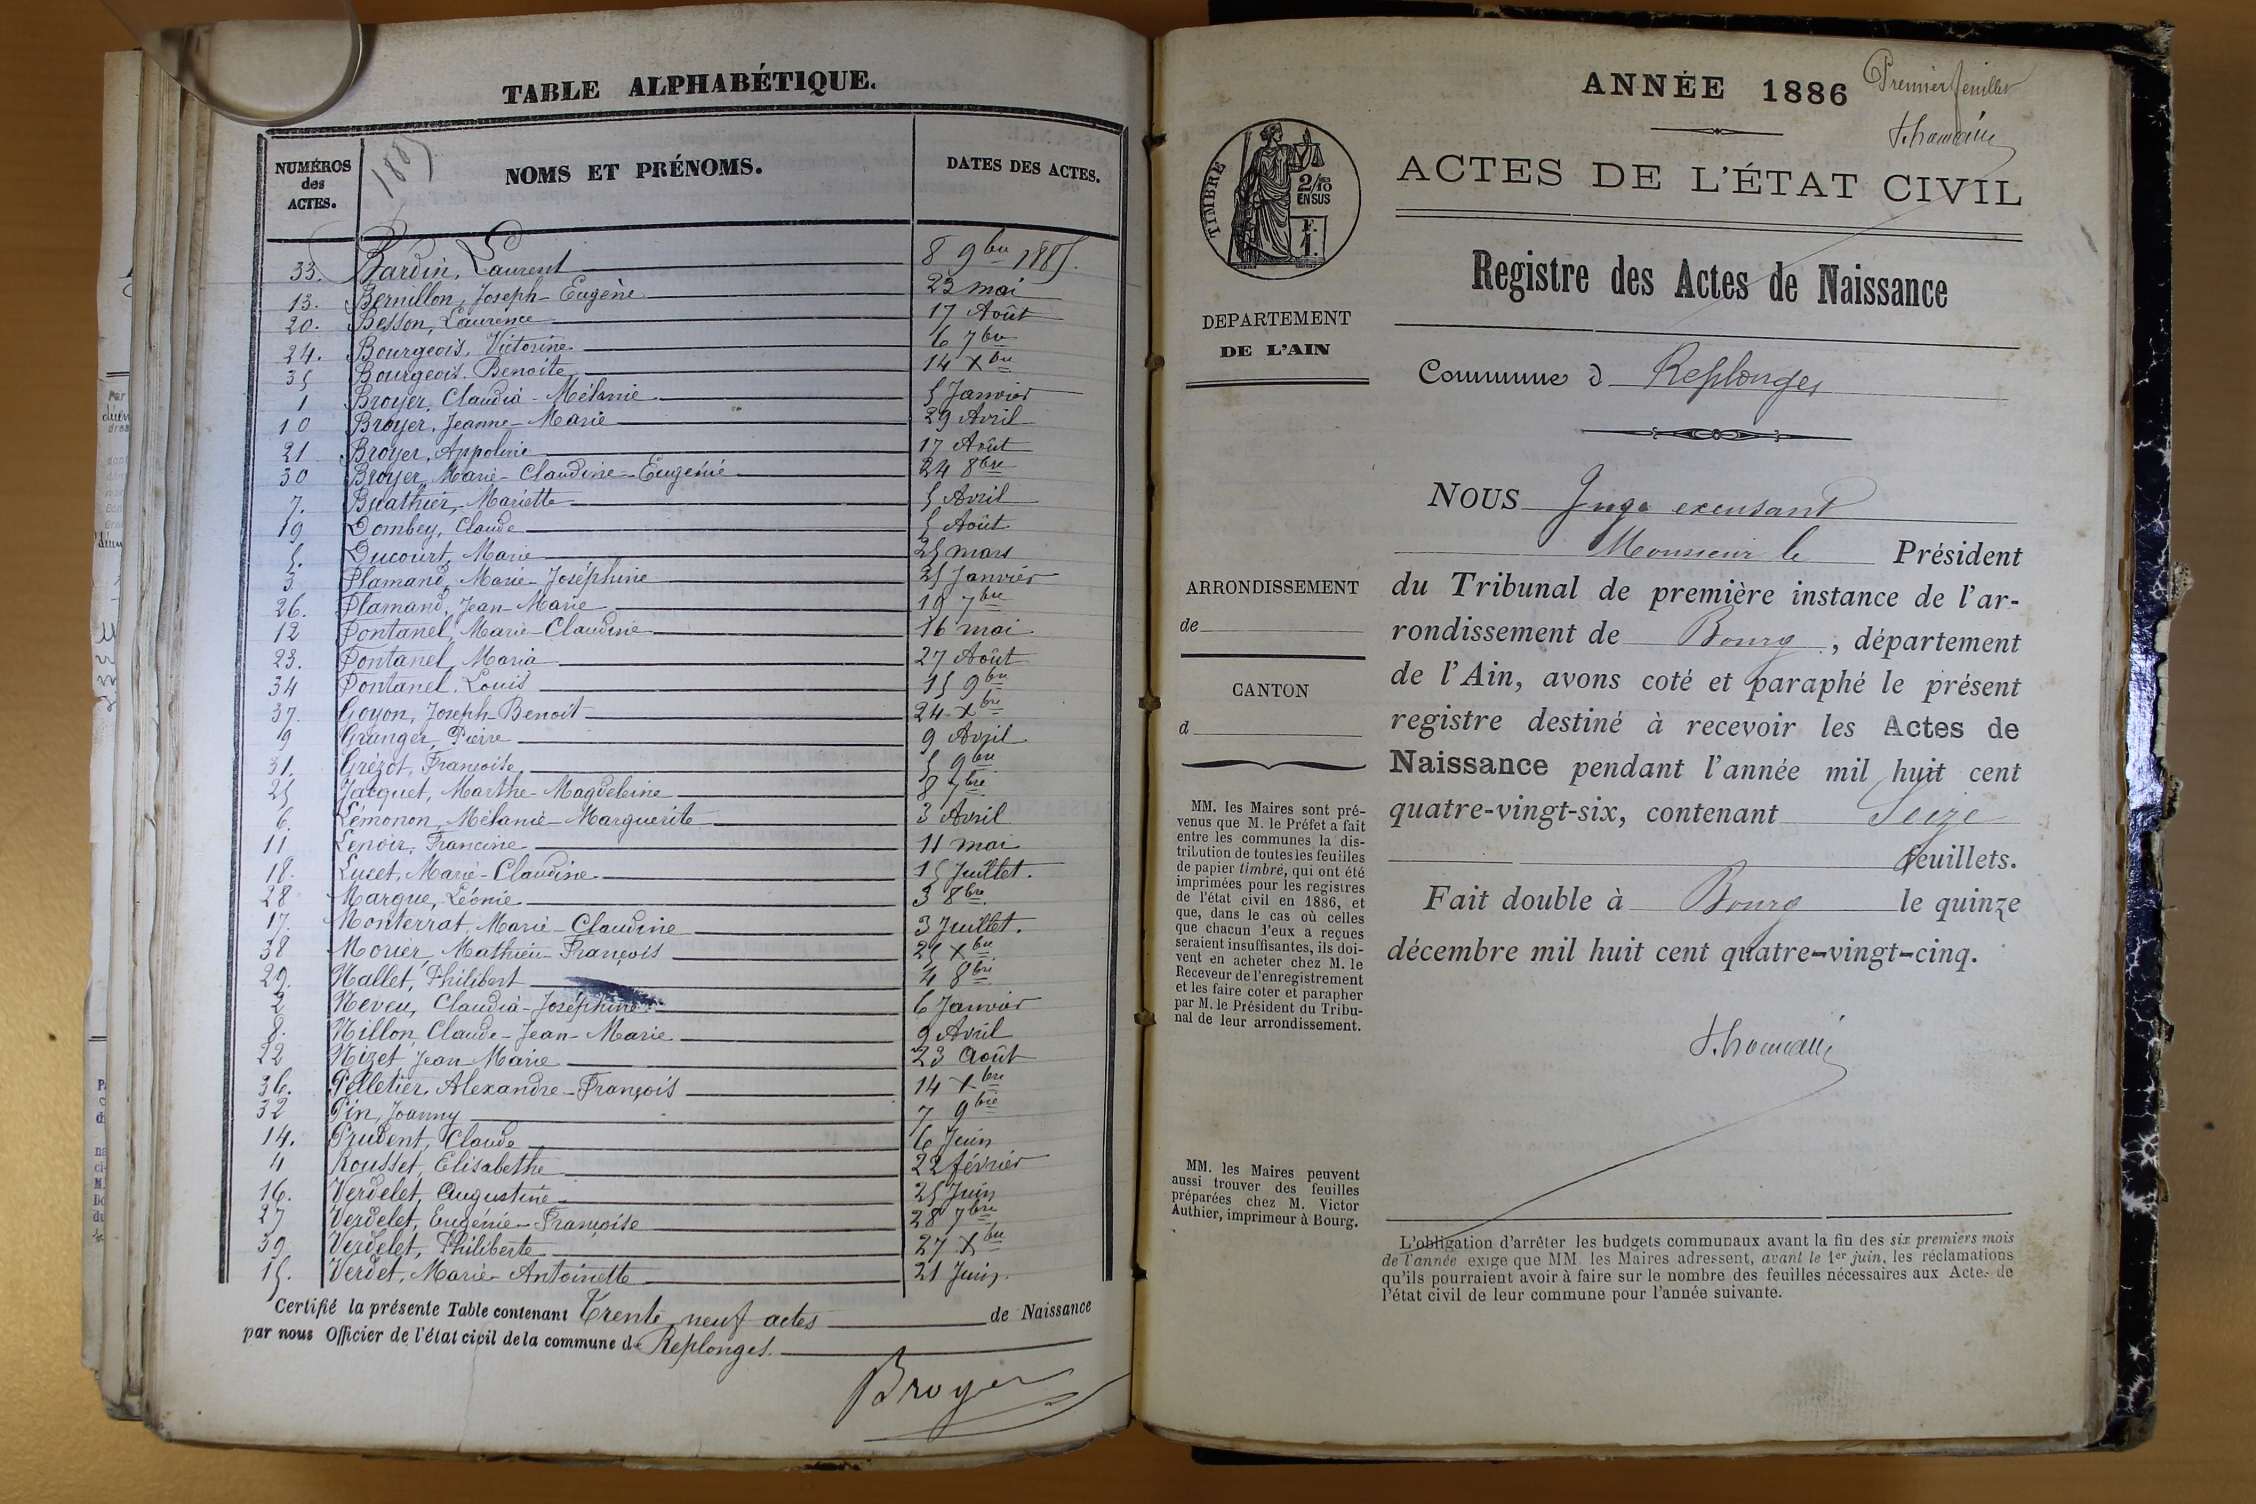 TABLE ALPHABÉTIQUE.
NUMÉROS des ACTES.
1885
NOMS ET PRÉNOMS.
DATES DES ACTES.
33. Bardin, Laurent 8 9bre 1885.
13. Bernillon, Joseph-Eugène 23 mai
20. Besson, Laurence 17 Août
24. Bourgeois, Victorine 6 7bre
35 Bourgeois, Benoite 14 Xbre
1 Broyer, Claudia-Mélanie 5 Janvier
10 Broyer, Jeanne-Marie 29 Avril
21 Broyer, Appoline 17 Août
30 Broyer, Marie-Claudine-Eugénie 24 8bre
7. Buathier, Mariette 5 Avril
19 Dombey, Claude 5 Août
5. Ducourt, Marie 25 mars
3 Flamand, Marie-Joséphine 25 Janvier
26. Flamand, Jean-Marie 19 7bre
12 Fontanel, Marie-Claudine 16 mai
23. Fontanel, Maria 27 Août
34 Fontanel, Louis 15 9bre
37. Goyon, Joseph-Benoit 24 Xbre
9 Granger, Pierre 9 Avril
31. Grézot, Françoise 5 9bre
25 Jacquet, Marthe-Magdeleine 8 7bre
6. Lémonon, Mélanie-Marguerite 3 Avril
11 Lenoir, Francine 11 mai
18. Lucet, Marie-Claudine 15 Juillet.
28 Margue, Léonie 3 8bre
17. Monterrat, Marie-Claudine 3 Juillet.
38 Morier, Mathieu-François 25 Xbre
29. Nallet, Philibert 4 8bre
2 Neveu, Claudia-Joséphine 6 Janvier
8. Nillon, Claude-Jean-Marie 9 Avril
22 Nizet, Jean Marie 23 Août
36. Pelletier, Alexandre-François 14 Xbre
32 Pin, Joanny 7 9bre
14. Prudent, Claude 6 Juin
4 Rousset, Elisabethe 22 février
16. Verdelet, Augustine 25 Juin
27 Verdelet, Eugénie-Françoise 28 7bre
39 Verdelet, Philiberte 27 Xbre
15. Verdet, Marie-Antoinette 21 Juin.
Certifié la présente Table contenant Trente neuf actes de Naissance
par nous Officier de l'état civil de la commune de Replonges.
Broyer
ANNÉE 1886
Premier feuillet
TIMBRE
2/10 EN SUS
ACTES DE L'ÉTAT CIVIL
Registre des Actes de Naissance
DEPARTEMENT
DE L'AIN
Commune d Replonges
NOUS Juge excusant
Monsieur le Président
du Tribunal de première instance de l'ar-
rondissement de Bourg, département
de l'Ain, avons coté et paraphé le présent
registre destiné à recevoir les Actes de
Naissance pendant l'année mil huit cent
quatre-vingt-six, contenant Seize
feuillets.
Fait double à Bourg le quinze
décembre mil huit cent quatre-vingt-cinq.
ARRONDISSEMENT
de
CANTON
d
MM. les Maires sont pré-
venus que M. le Préfet a fait
entre les communes la dis-
tribution de toutes les feuilles
de papier timbré, qui ont été
imprimées pour les registres
de l'état civil en 1886, et
que, dans le cas où celles
que chacun d'eux a reçues
seraient insuffisantes, ils doi-
vent en acheter chez M. le
Receveur de l'enregistrement
et les faire coter et parapher
par M. le Président du Tribu-
nal de leur arrondissement.
MM. les Maires peuvent
aussi trouver des feuilles
préparées chez M. Victor
Authier, imprimeur à Bourg.
L'obligation d'arrêter les budgets communaux avant la fin des six premiers mois
de l'année exige que MM. les Maires adressent, avant le 1er juin, les réclamations
qu'ils pourraient avoir à faire sur le nombre des feuilles nécessaires aux Actes de
l'état civil de leur commune pour l'année suivante.